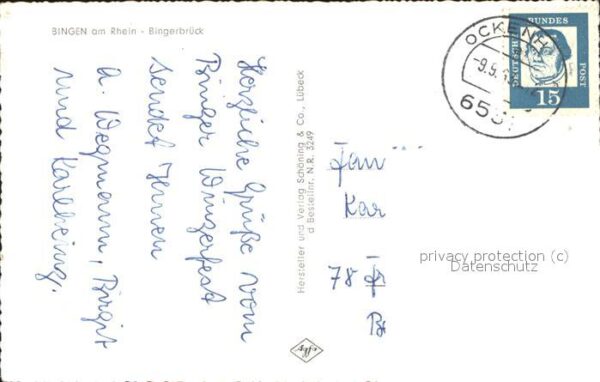 BINGEN am Rhein - Bingerbrück
Herzliche Grüße vom
Binger Winzerfest
sendet Ihnen
A. Wegmann, Birgit
und Karlheinz.
Hersteller und Verlag Schöning & Co., Lübeck
Bestellnr. N.R. 3249
Fam
Kar
78
OCKENH
-9.9.
6531
BUNDES
POST
15
privacy protection (c)
Datenschutz